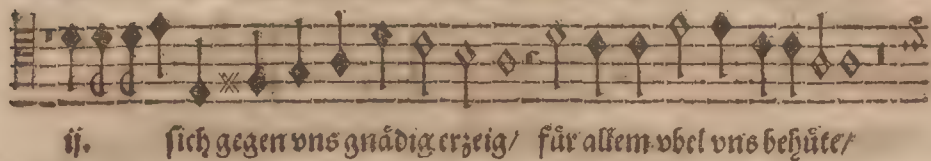 ij. sich gegen vns gnådig erzeig/ für allem vbel vns behüte/